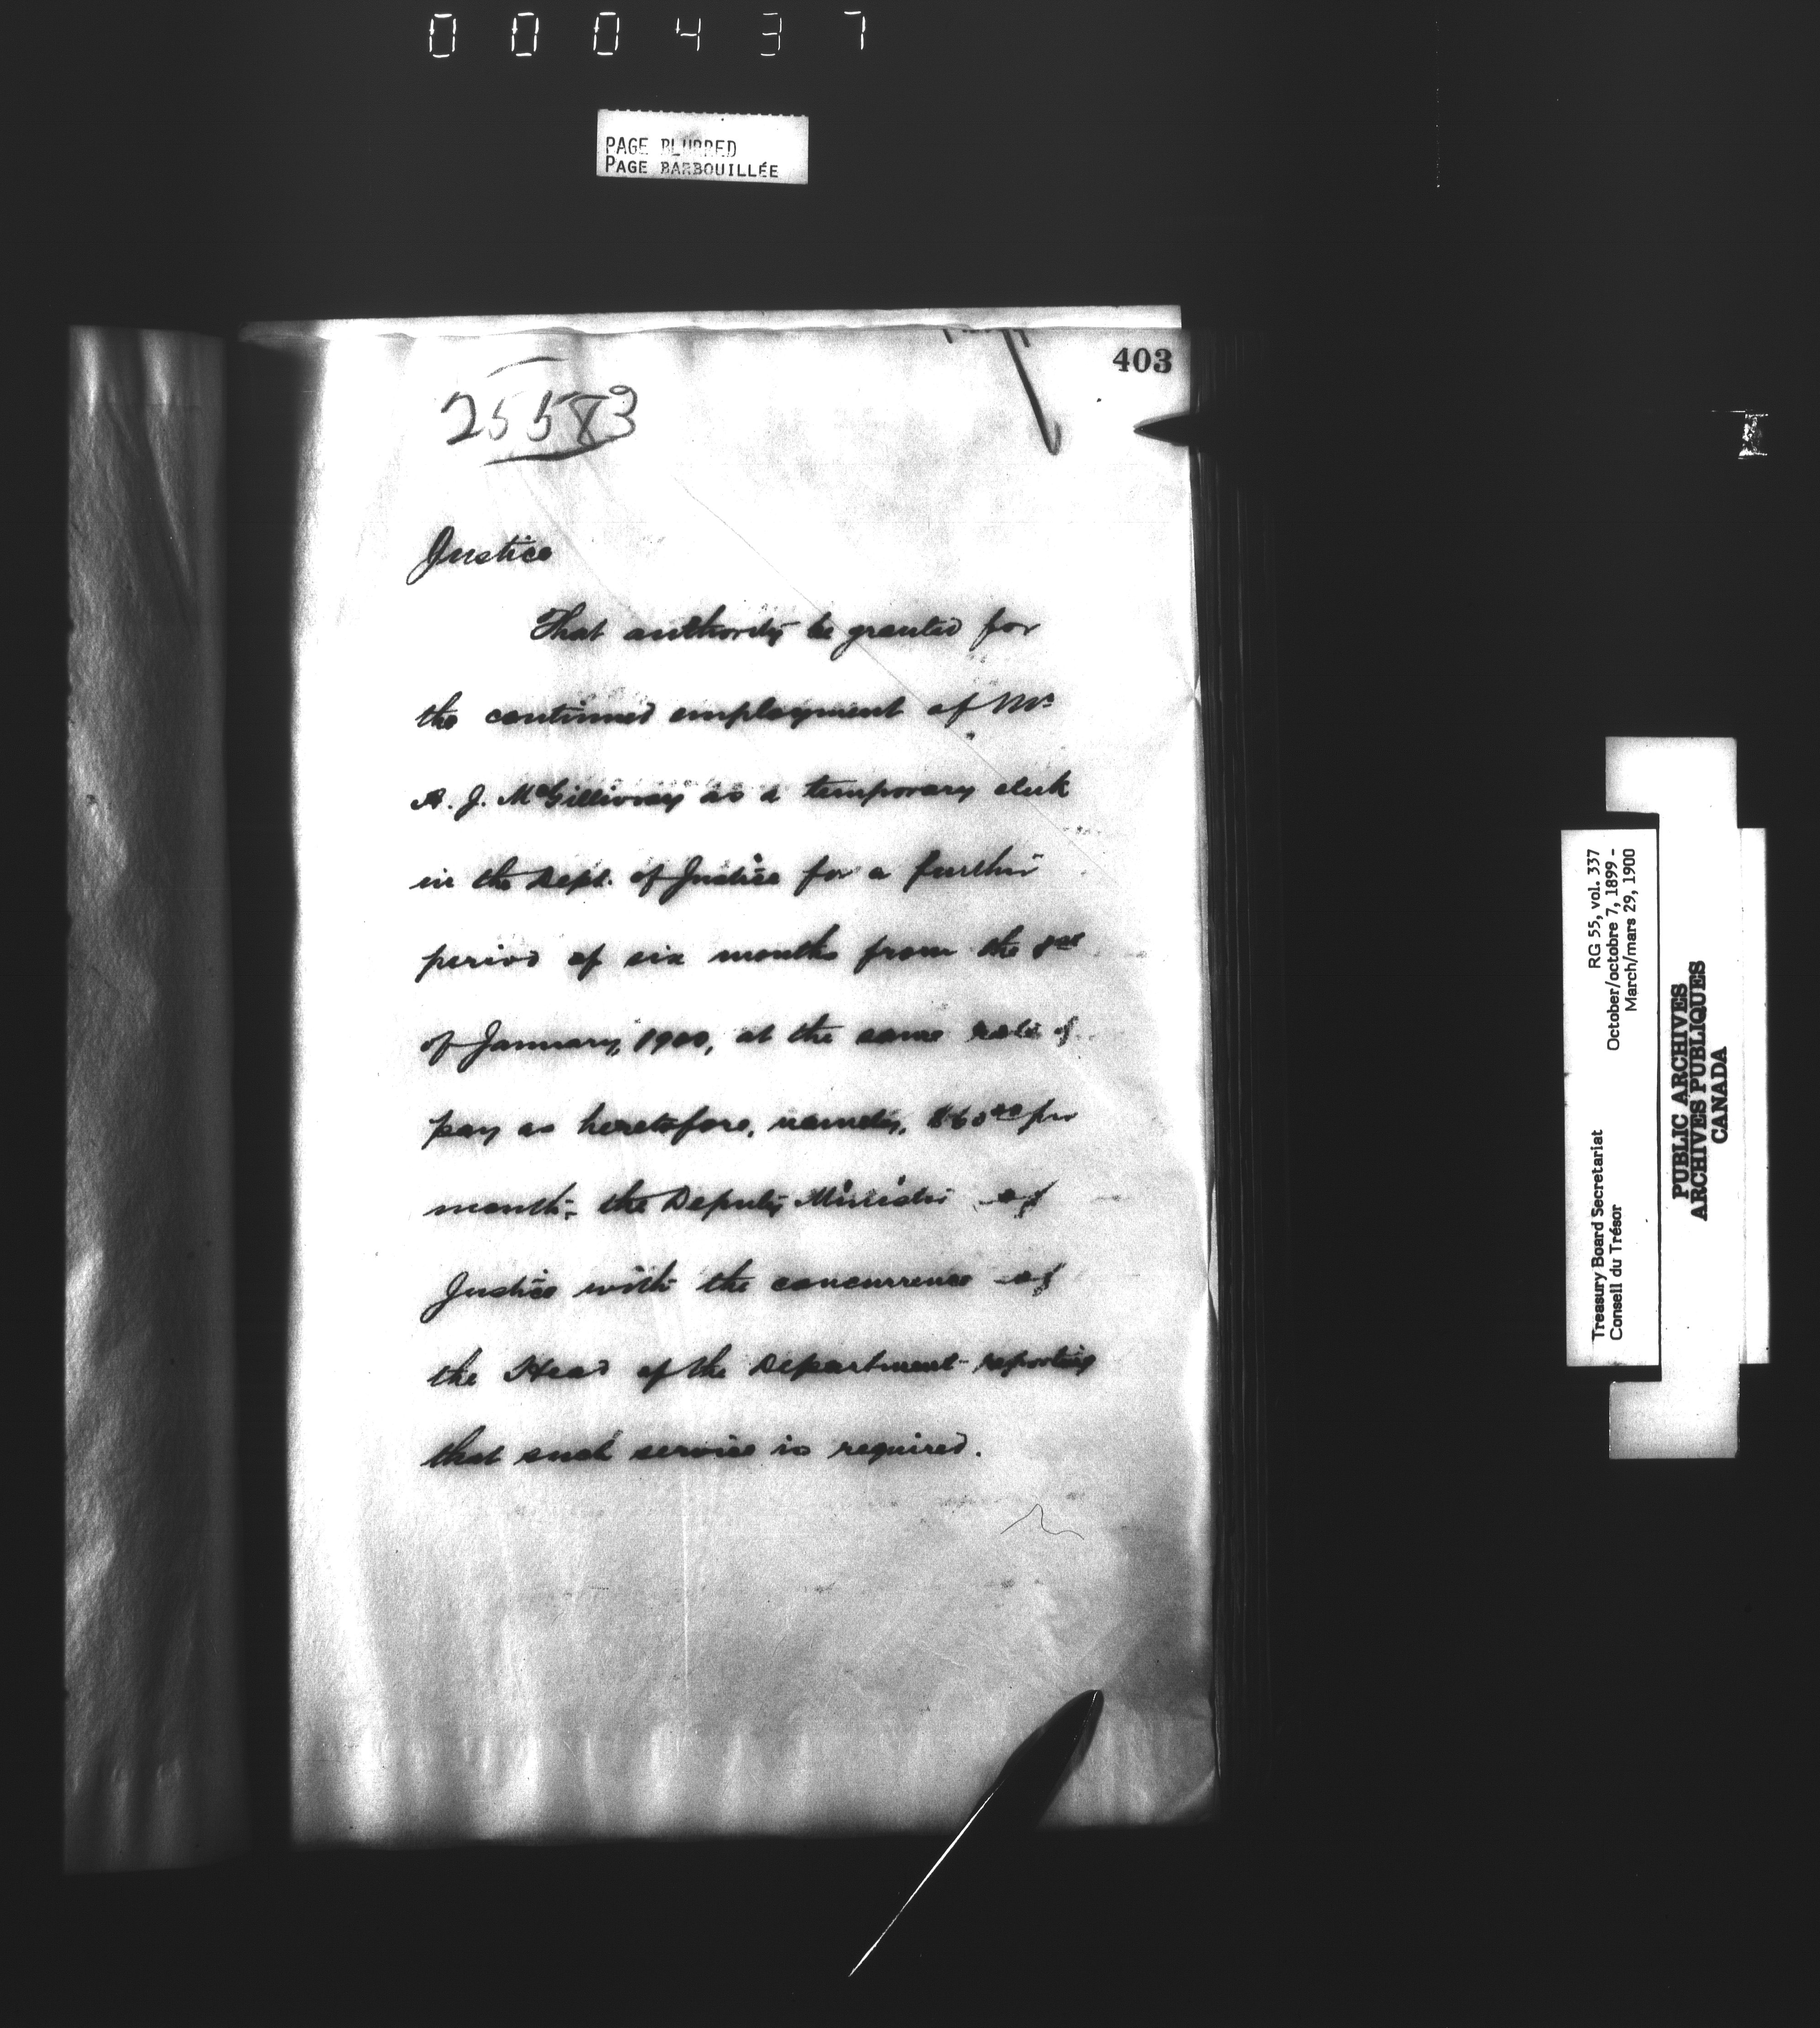 000437
PAGE BLURRED
PAGE BARBOUILLÉE
403
25583
Justice
That authority be granted for
the continued employment of Mr
A. J. McGillivray as a temporary clerk
in the Dept. of Justice for a further
period of six months from the 1st
of January, 1900, at the same rate of
pay as heretofore, namely, $60.00 per
month; the Deputy Minister of
Justice with the concurrence of
the Head of the Department reporting
that such service is required.
RG 55, vol. 337
October/octobre 7, 1899 -
March/mars 29, 1900
Treasury Board Secretariat
Conseil du Trésor
PUBLIC ARCHIVES
ARCHIVES PUBLIQUES
CANADA